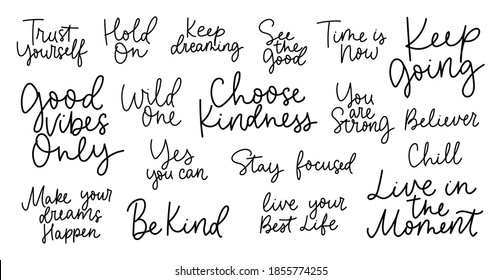 Trust
Yourself
Hold
On
Keep
dreaming
See
the
Good
Time is
Now
Keep
Going
Good
vibes
Only
Wild
One
Choose
Kindness
You
are
Strong
Believer
Yes
you can
Stay focused
Chill
Make your
dreams
Happen
Be Kind
live your
Best Life
Live in
the
Moment
shutterstock.com · 1855774255